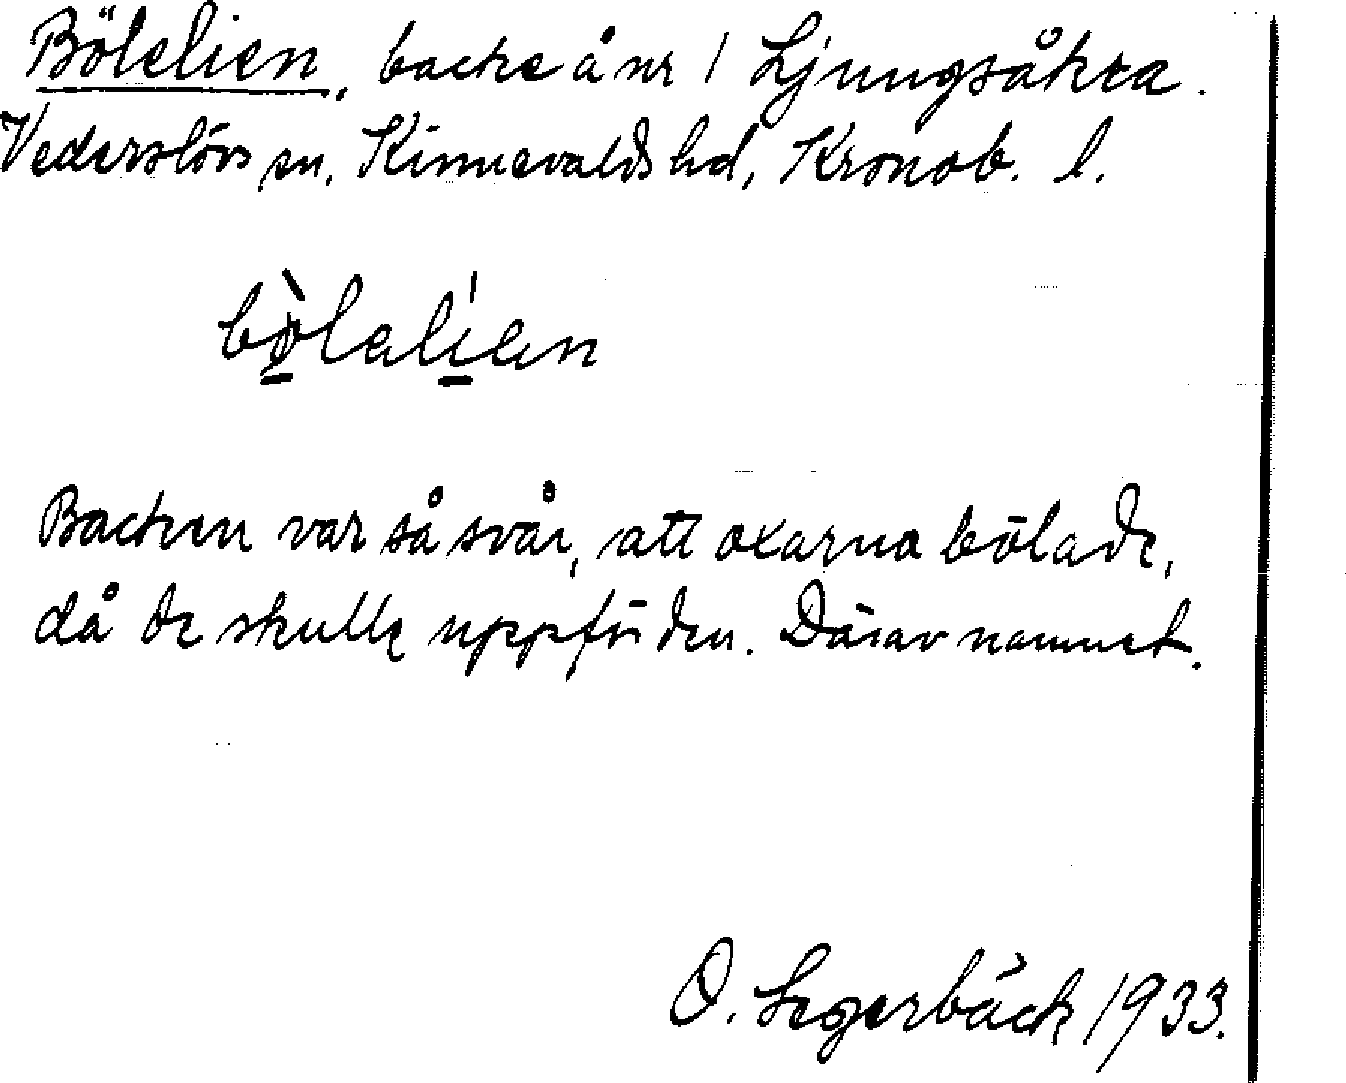 Bölelien, backe å nr 1 Ljungsåkra.
Vederslövs sn, Kinnevalds hd, Kronob. l.
bö̀lelíen
Backen var så svår, att oxarna bölade,
då de skulle uppför den. Därav namnet.
O. Segerbäck 1933.